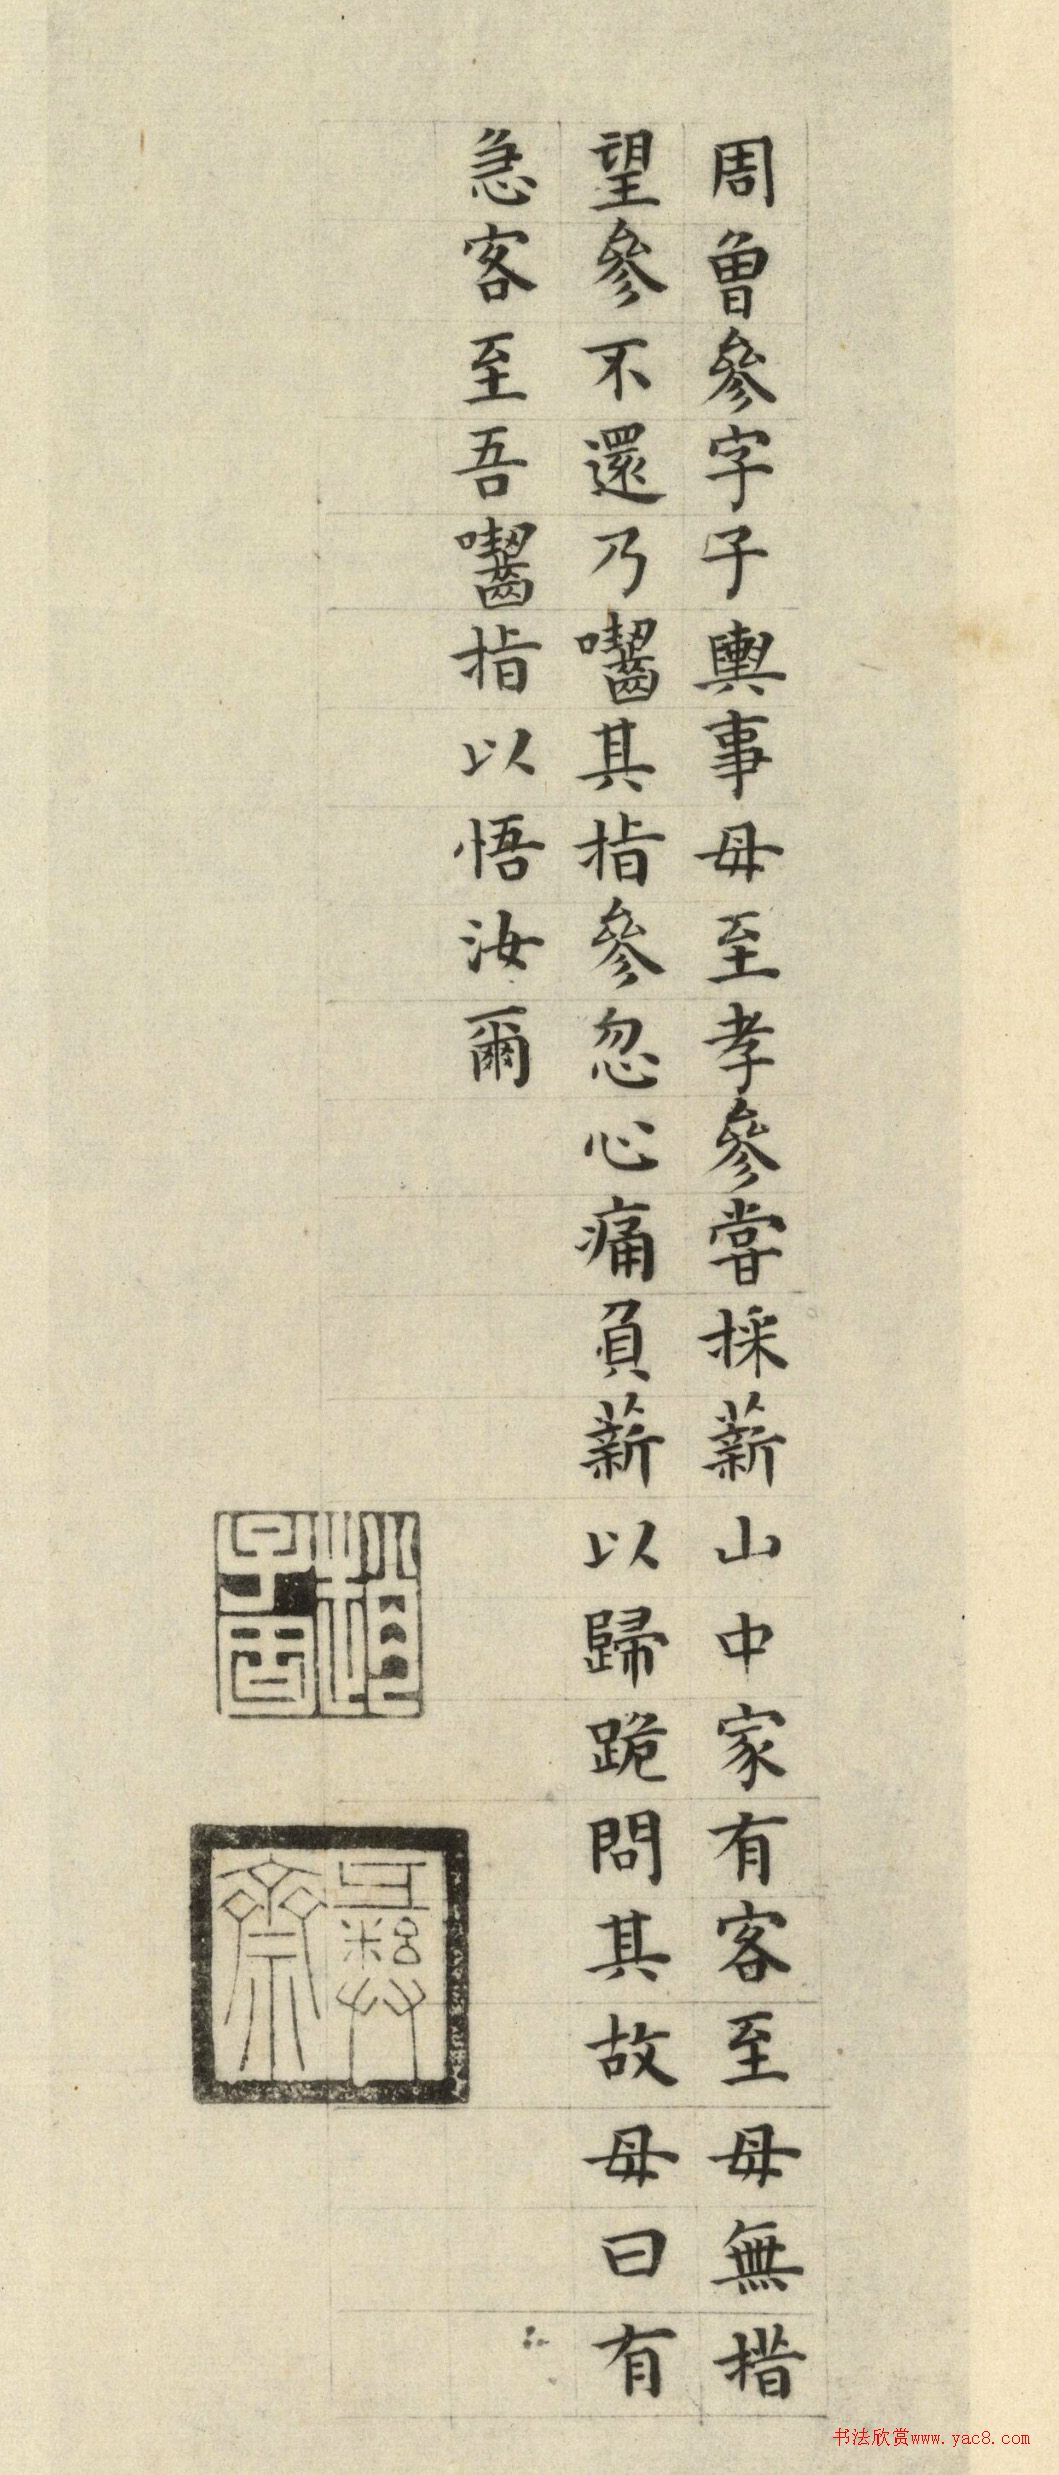 周曾參字子輿事母至孝參嘗採薪山中家有客至母無措
望參不還乃嚙其指參忽心痛負薪以歸跪問其故母曰有
急客至吾嚙指以悟汝爾
書法欣赏www.yac8.com